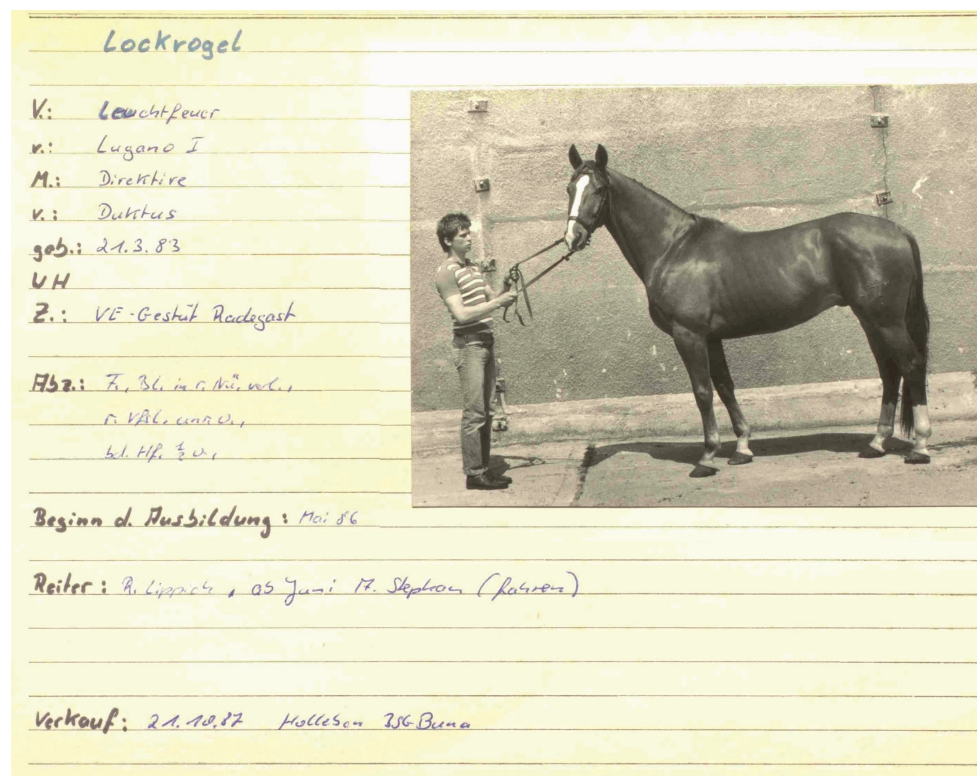 Lockvogel
V.: Leuchtfeuer
v.: Lugano I
M.: Direktive
v.: Duktus
geb.: 21.3.83
UH
Z.: VE-Gestüt Radegast
Abz.: F., Bl. in r. Nü. verl.,
r. Vfsl. unr. w.,
bd. Hf. ½ w.,
Beginn d. Ausbildung: Mai 86
Reiter: R. Lippich, ab Juni M. Stephan (fahren)
Verkauf: 21.10.87 Holleben BSG Buna